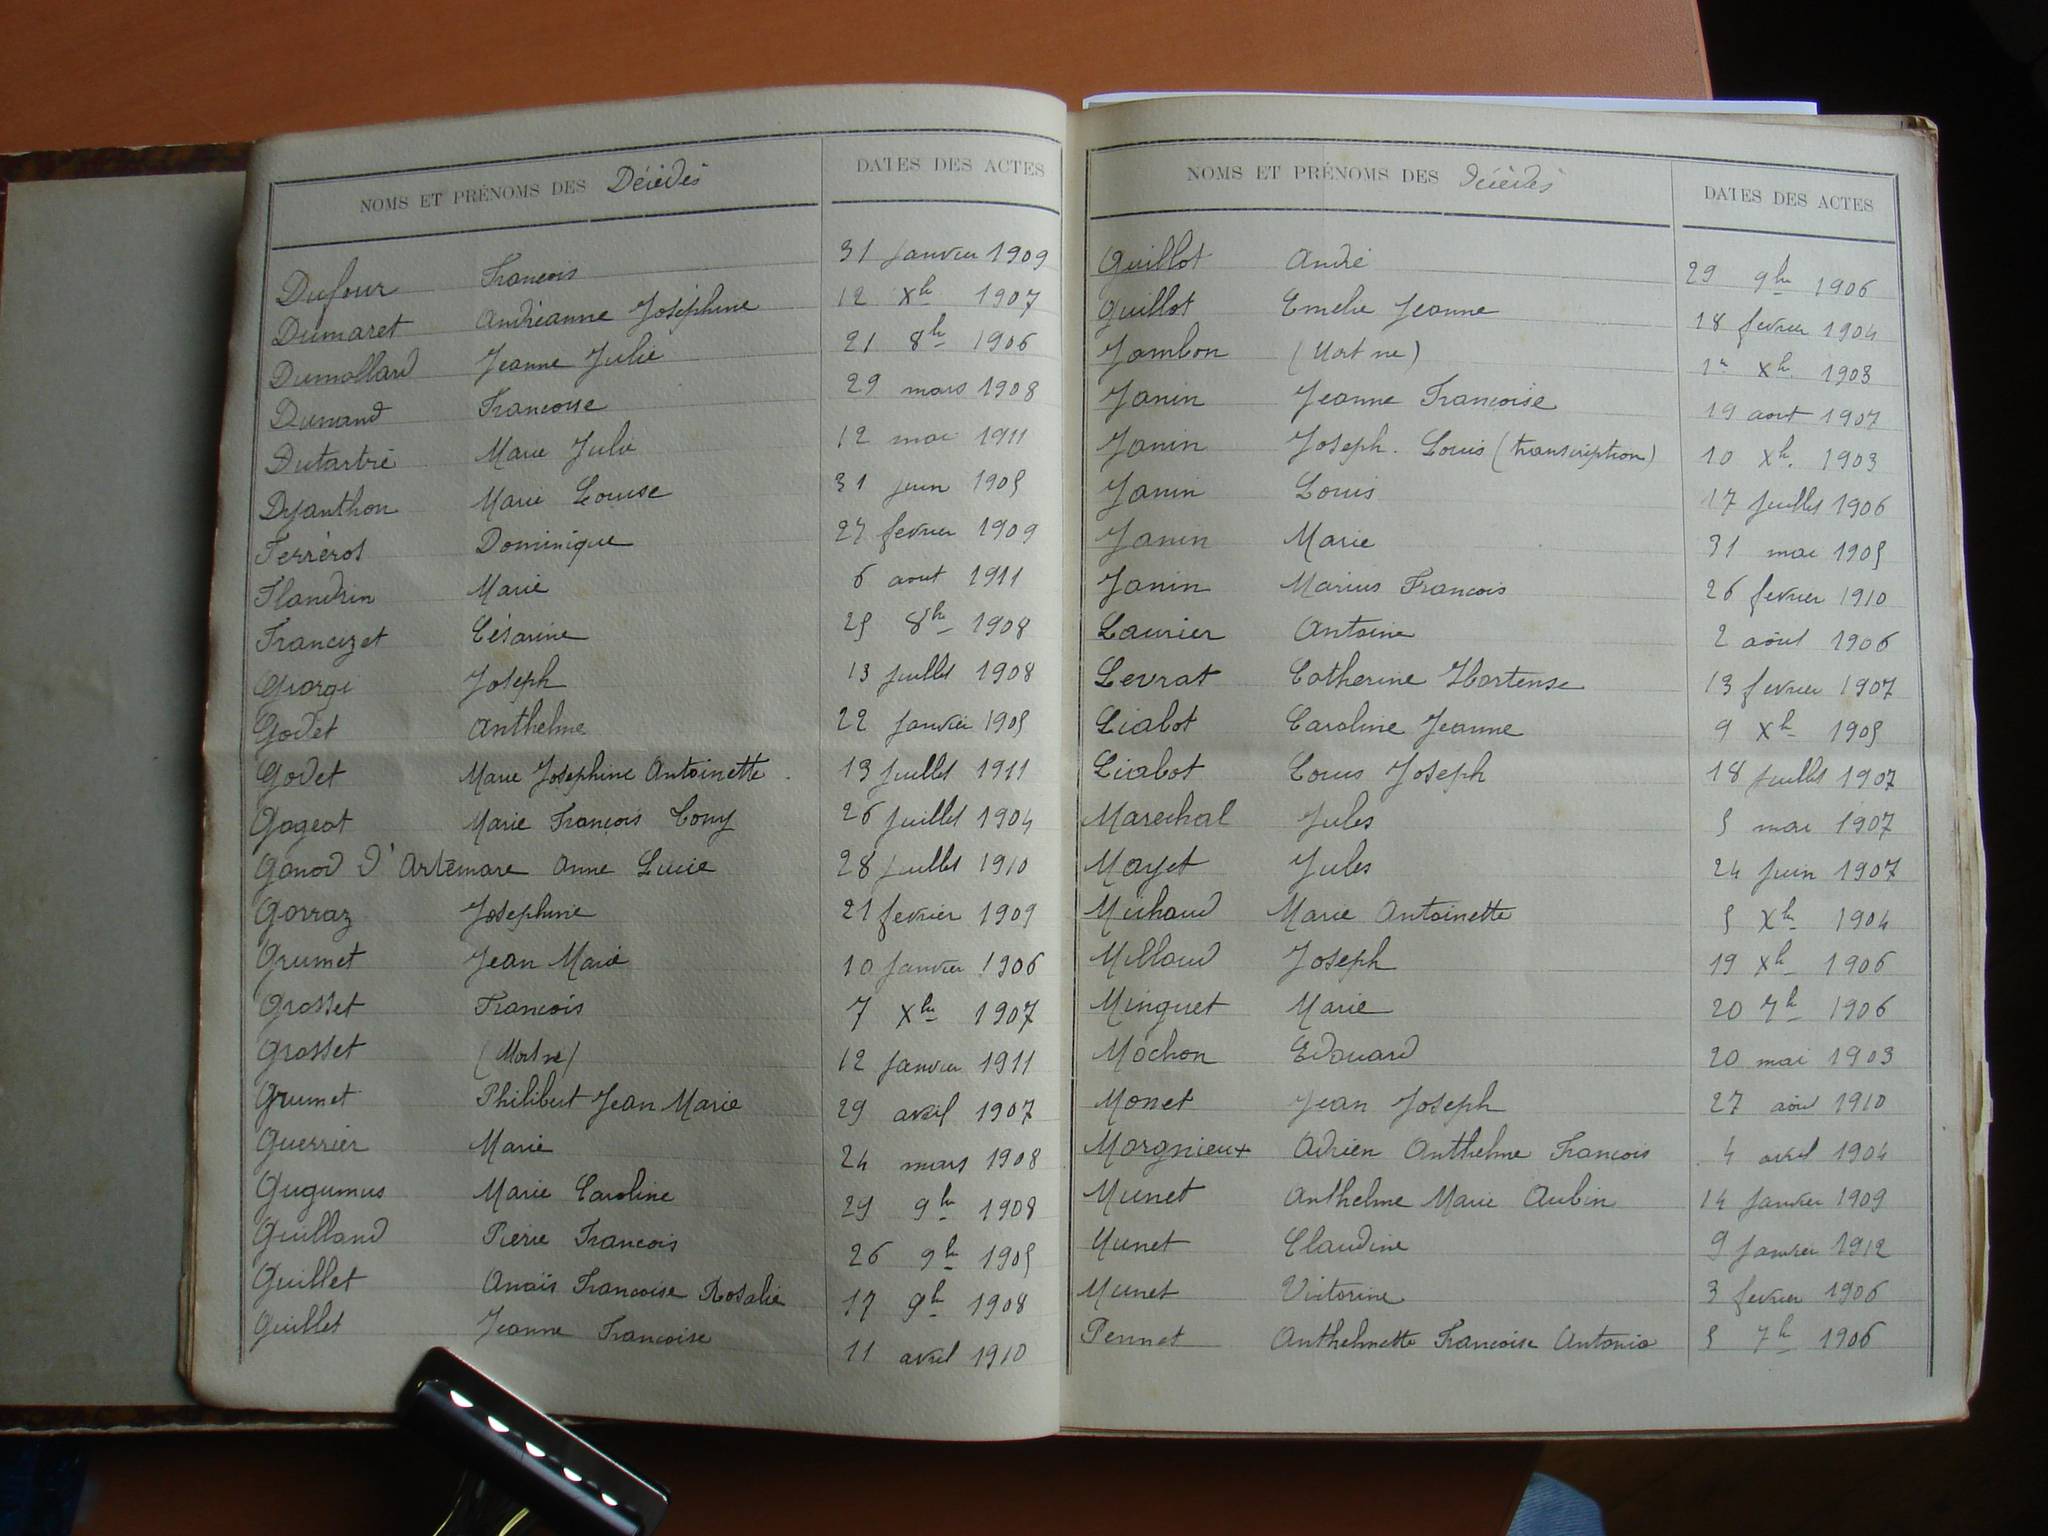 NOMS ET PRÉNOMS DES Décédés DATES DES ACTES
Dufour François 31 Janvier 1909
Dumaret Andréanne Joséphine 12 Xbre 1907
Dumollard Jeanne Julie 21 8bre 1906
Dunand Françoise 29 mars 1908
Dutartre Marie Julie 12 mai 1911
Dyanthon Marie Louise 31 juin 1905
Ferrérol Dominique 27 fevrier 1909
Flandrin Marie 6 aout 1911
Francizet Césarine 25 8bre 1908
Giorgi Joseph 13 juillet 1908
Godet Anthelme 22 Janvier 1905
Godet Marie Joséphine Antoinette 13 juillet 1911
Gogeat Marie François Tony 26 juillet 1904
Gonod d'Artemare Anne Lucie 28 juillet 1910
Gorraz Joséphine 21 fevrier 1909
Grumet Jean Marie 10 Janvier 1906
Grosset François 7 Xbre 1907
Grosset (Mort né) 12 Janvier 1911
Grumet Philibert Jean Marie 29 avril 1907
Guerrier Marie 24 mars 1908
Gugumus Marie Caroline 29 9bre 1908
Guilland Pierre François 26 9bre 1905
Guillet Anaïs Françoise Rosalie 17 9bre 1908
Guillet Jeanne Françoise 11 avril 1910
NOMS ET PRÉNOMS DES Décédés DATES DES ACTES
Guillot André 29 9bre 1906
Guillot Emelie Jeanne 18 fevrier 1904
Jambon (Mort né) 1er Xbre 1903
Janin Jeanne Françoise 19 aout 1907
Janin Joseph Louis (transcription) 10 Xbre 1903
Janin Louis 17 juillet 1906
Janin Marie 31 mai 1905
Janin Marius François 26 fevrier 1910
Laurier Antoine 2 août 1906
Levrat Catherine Hortense 13 fevrier 1907
Liabot Caroline Jeanne 9 Xbre 1905
Liabot Louis Joseph 18 juillet 1907
Marechal Jules 5 mai 1907
Mayet Jules 24 juin 1907
Michaud Marie Antoinette 5 Xbre 1904
Millaud Joseph 19 Xbre 1906
Minguet Marie 20 7bre 1906
Mochon Edouard 20 mai 1903
Monet Jean Joseph 27 août 1910
Morgnieux Adrien Anthelme François 4 avril 1904
Munet Anthelme Marie Aubin 14 Janvier 1909
Munet Claudine 9 Janvier 1912
Munet Victorine 3 fevrier 1906
Pennet Anthelmette Françoise Antonia 5 7bre 1906